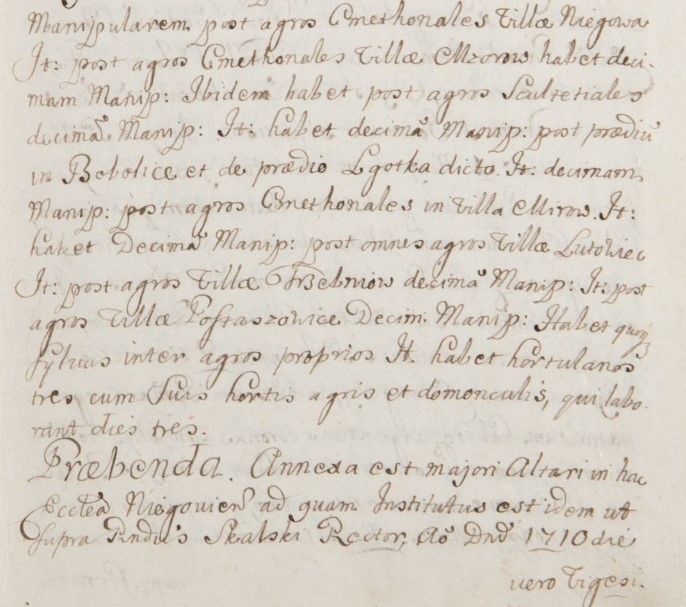 Manipularem post agros Cmethonales Villæ Niegowa
It: post agros Cmethonales Villæ Mzorow habet deci-
mam Manip: Ibidem habet post agros Scultetiales
decimã Manip: It: habet decimã Manip: post prædiũ
in Bobolice et de prædio Lgotka dicto. It: decimam
Manip: post agros Cmethonales in Villa Mirow. It:
habet Decimã Manip: post omnes agros Villæ Lutowiec
It: post agros Villæ Trzebniow decimã Manip: It: post
agros Villæ Postaszowice Decim: Manip: Habet quoq
sylvas inter agros proprios It. habet hortulanos
tres cum suis hortis agris et domonculis, qui labo-
rant dies tres.
Præbenda. Annexa est majori Altari in hac
Ecctẽa Niegovien̄ ad quam Institutus est idem ut
supra Skalski Rector, Aõ Dnĩ 1710 die
vero Vigesi-